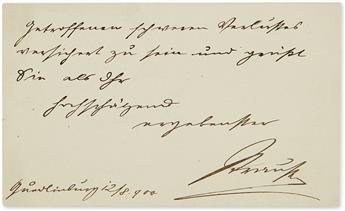 Getroffenen schweren Verlustes
versichert zu sein und grüßt
Sie als Ihr
hochschätzend
ergebenster
Strauss
Quedlinburg 12/8 900